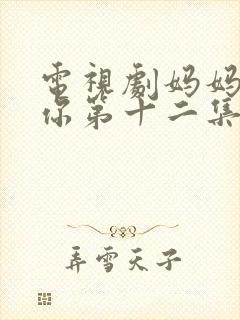 電視劇妈妈
你第十二集
弄雪天子